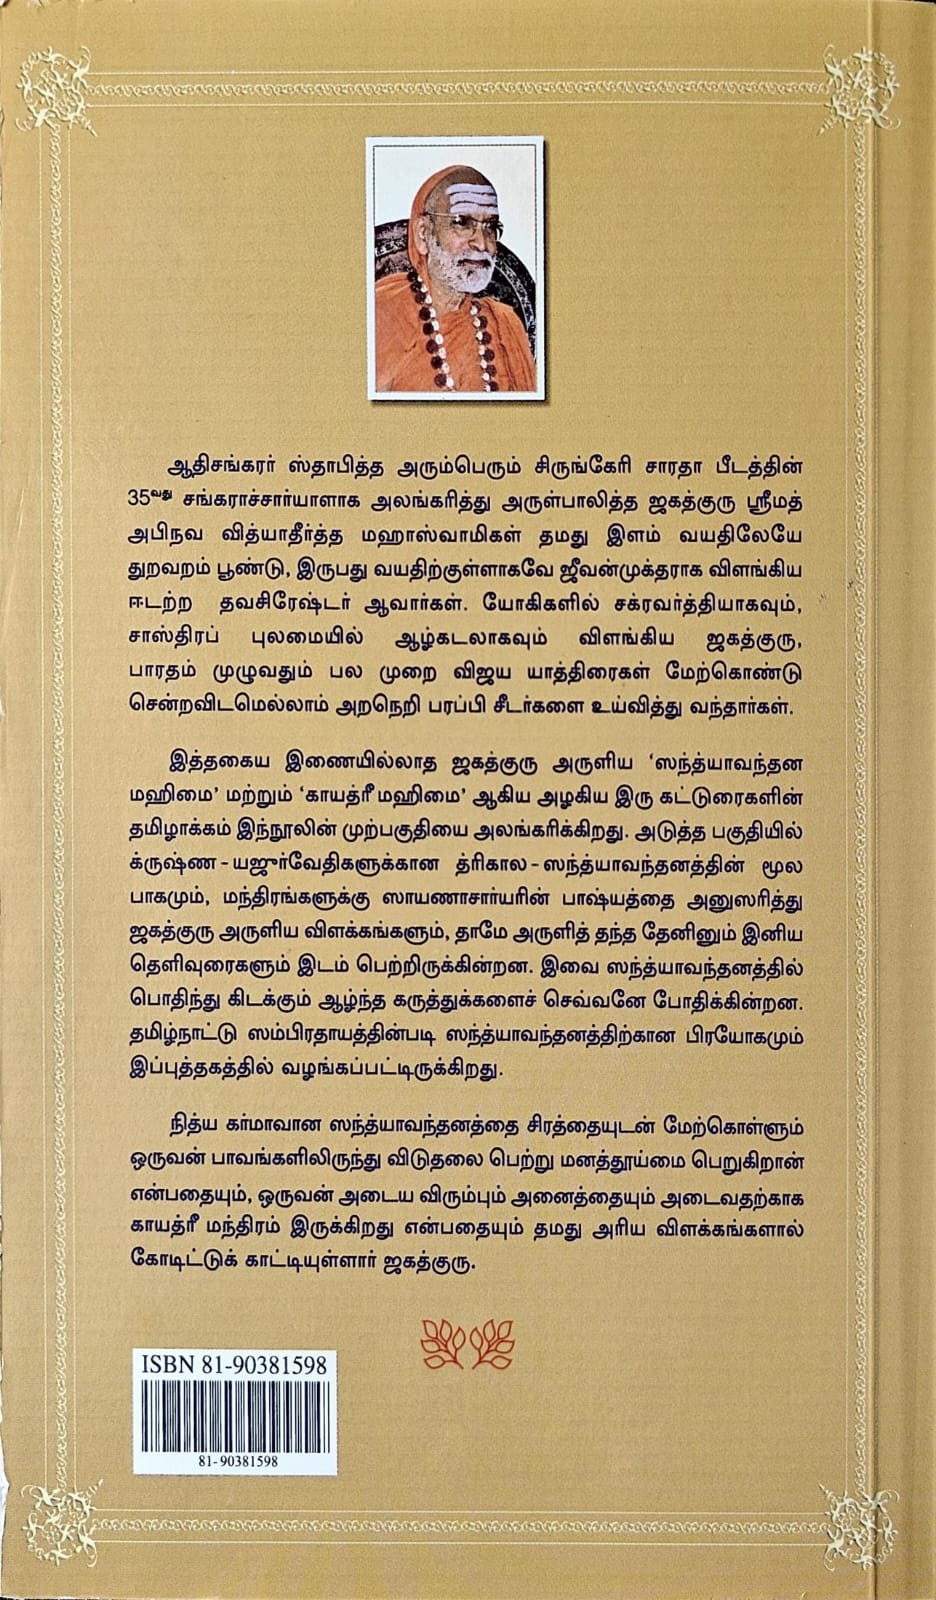 ஆதிசங்கரர் ஸ்தாபித்த அரும்பெரும் சிருங்கேரி சாரதா பீடத்தின்
35வது சங்கராச்சார்யாளாக அலங்கரித்து அருள்பாலித்த ஜகத்குரு ஸ்ரீமத்
அபிநவ வித்யாதீர்த்த மஹாஸ்வாமிகள் தமது இளம் வயதிலேயே
துறவறம் பூண்டு, இருபது வயதிற்குள்ளாகவே ஜீவன்முக்தராக விளங்கிய
ஈடற்ற தவசிரேஷ்டர் ஆவார்கள். யோகிகளில் சக்ரவர்த்தியாகவும்,
சாஸ்திரப் புலமையில் ஆழ்கடலாகவும் விளங்கிய ஜகத்குரு,
பாரதம் முழுவதும் பல முறை விஜய யாத்திரைகள் மேற்கொண்டு
சென்றவிடமெல்லாம் அறநெறி பரப்பி சீடர்களை உய்வித்து வந்தார்கள்.
இத்தகைய இணையில்லாத ஜகத்குரு அருளிய ‘ஸந்த்யாவந்தன
மஹிமை’ மற்றும் ‘காயத்ரீ மஹிமை’ ஆகிய அழகிய இரு கட்டுரைகளின்
தமிழாக்கம் இந்நூலின் முற்பகுதியை அலங்கரிக்கிறது. அடுத்த பகுதியில்
க்ருஷ்ண-யஜுர்வேதிகளுக்கான த்ரிகால-ஸந்த்யாவந்தனத்தின் மூல
பாகமும், மந்திரங்களுக்கு ஸாயணாசார்யரின் பாஷ்யத்தை அனுஸரித்து
ஜகத்குரு அருளிய விளக்கங்களும், தாமே அருளித் தந்த தேனினும் இனிய
தெளிவுரைகளும் இடம் பெற்றிருக்கின்றன. இவை ஸந்த்யாவந்தனத்தில்
பொதிந்து கிடக்கும் ஆழ்ந்த கருத்துக்களைச் செவ்வனே போதிக்கின்றன.
தமிழ்நாட்டு ஸம்பிரதாயத்தின்படி ஸந்த்யாவந்தனத்திற்கான பிரயோகமும்
இப்புத்தகத்தில் வழங்கப்பட்டிருக்கிறது.
நித்ய கர்மாவான ஸந்த்யாவந்தனத்தை சிரத்தையுடன் மேற்கொள்ளும்
ஒருவன் பாவங்களிலிருந்து விடுதலை பெற்று மனத்தூய்மை பெறுகிறான்
என்பதையும், ஒருவன் அடைய விரும்பும் அனைத்தையும் அடைவதற்காக
காயத்ரீ மந்திரம் இருக்கிறது என்பதையும் தமது அரிய விளக்கங்களால்
கோடிட்டுக் காட்டியுள்ளார் ஜகத்குரு.
ISBN 81-90381598
81-90381598